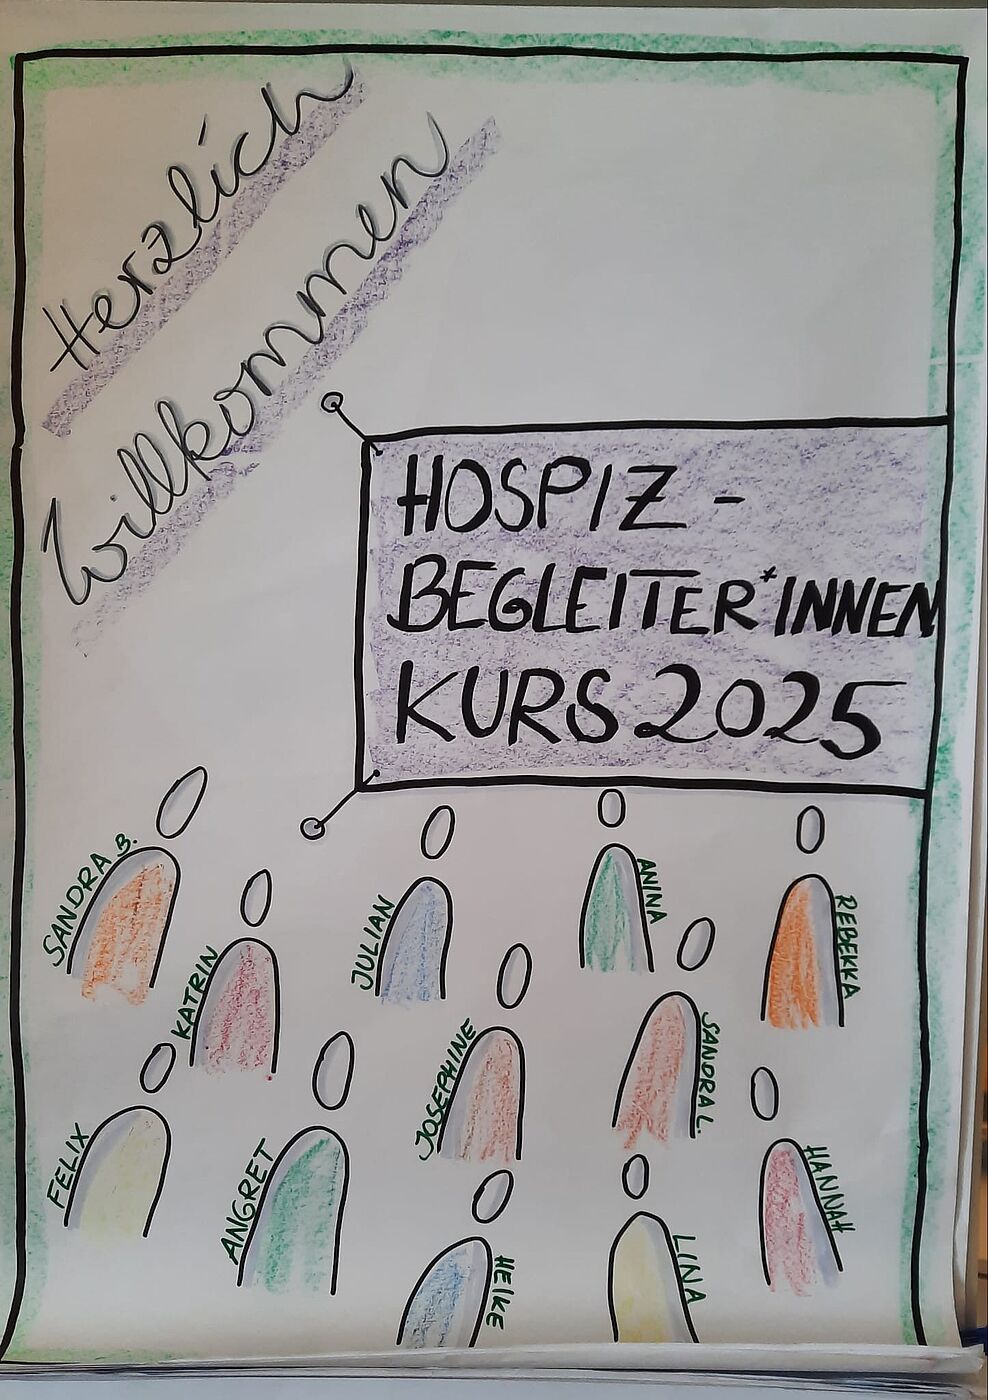 Herzlich
Willkommen
HOSPIZ-
BEGLEITER*INNEN
KURS 2025
SANDRA B.
KATRIN
JULIAN
ANINA
REBEKKA
JOSEPHINE
SANDRA L.
FELIX
ANGRET
HANNAH
HEIKE
LINA